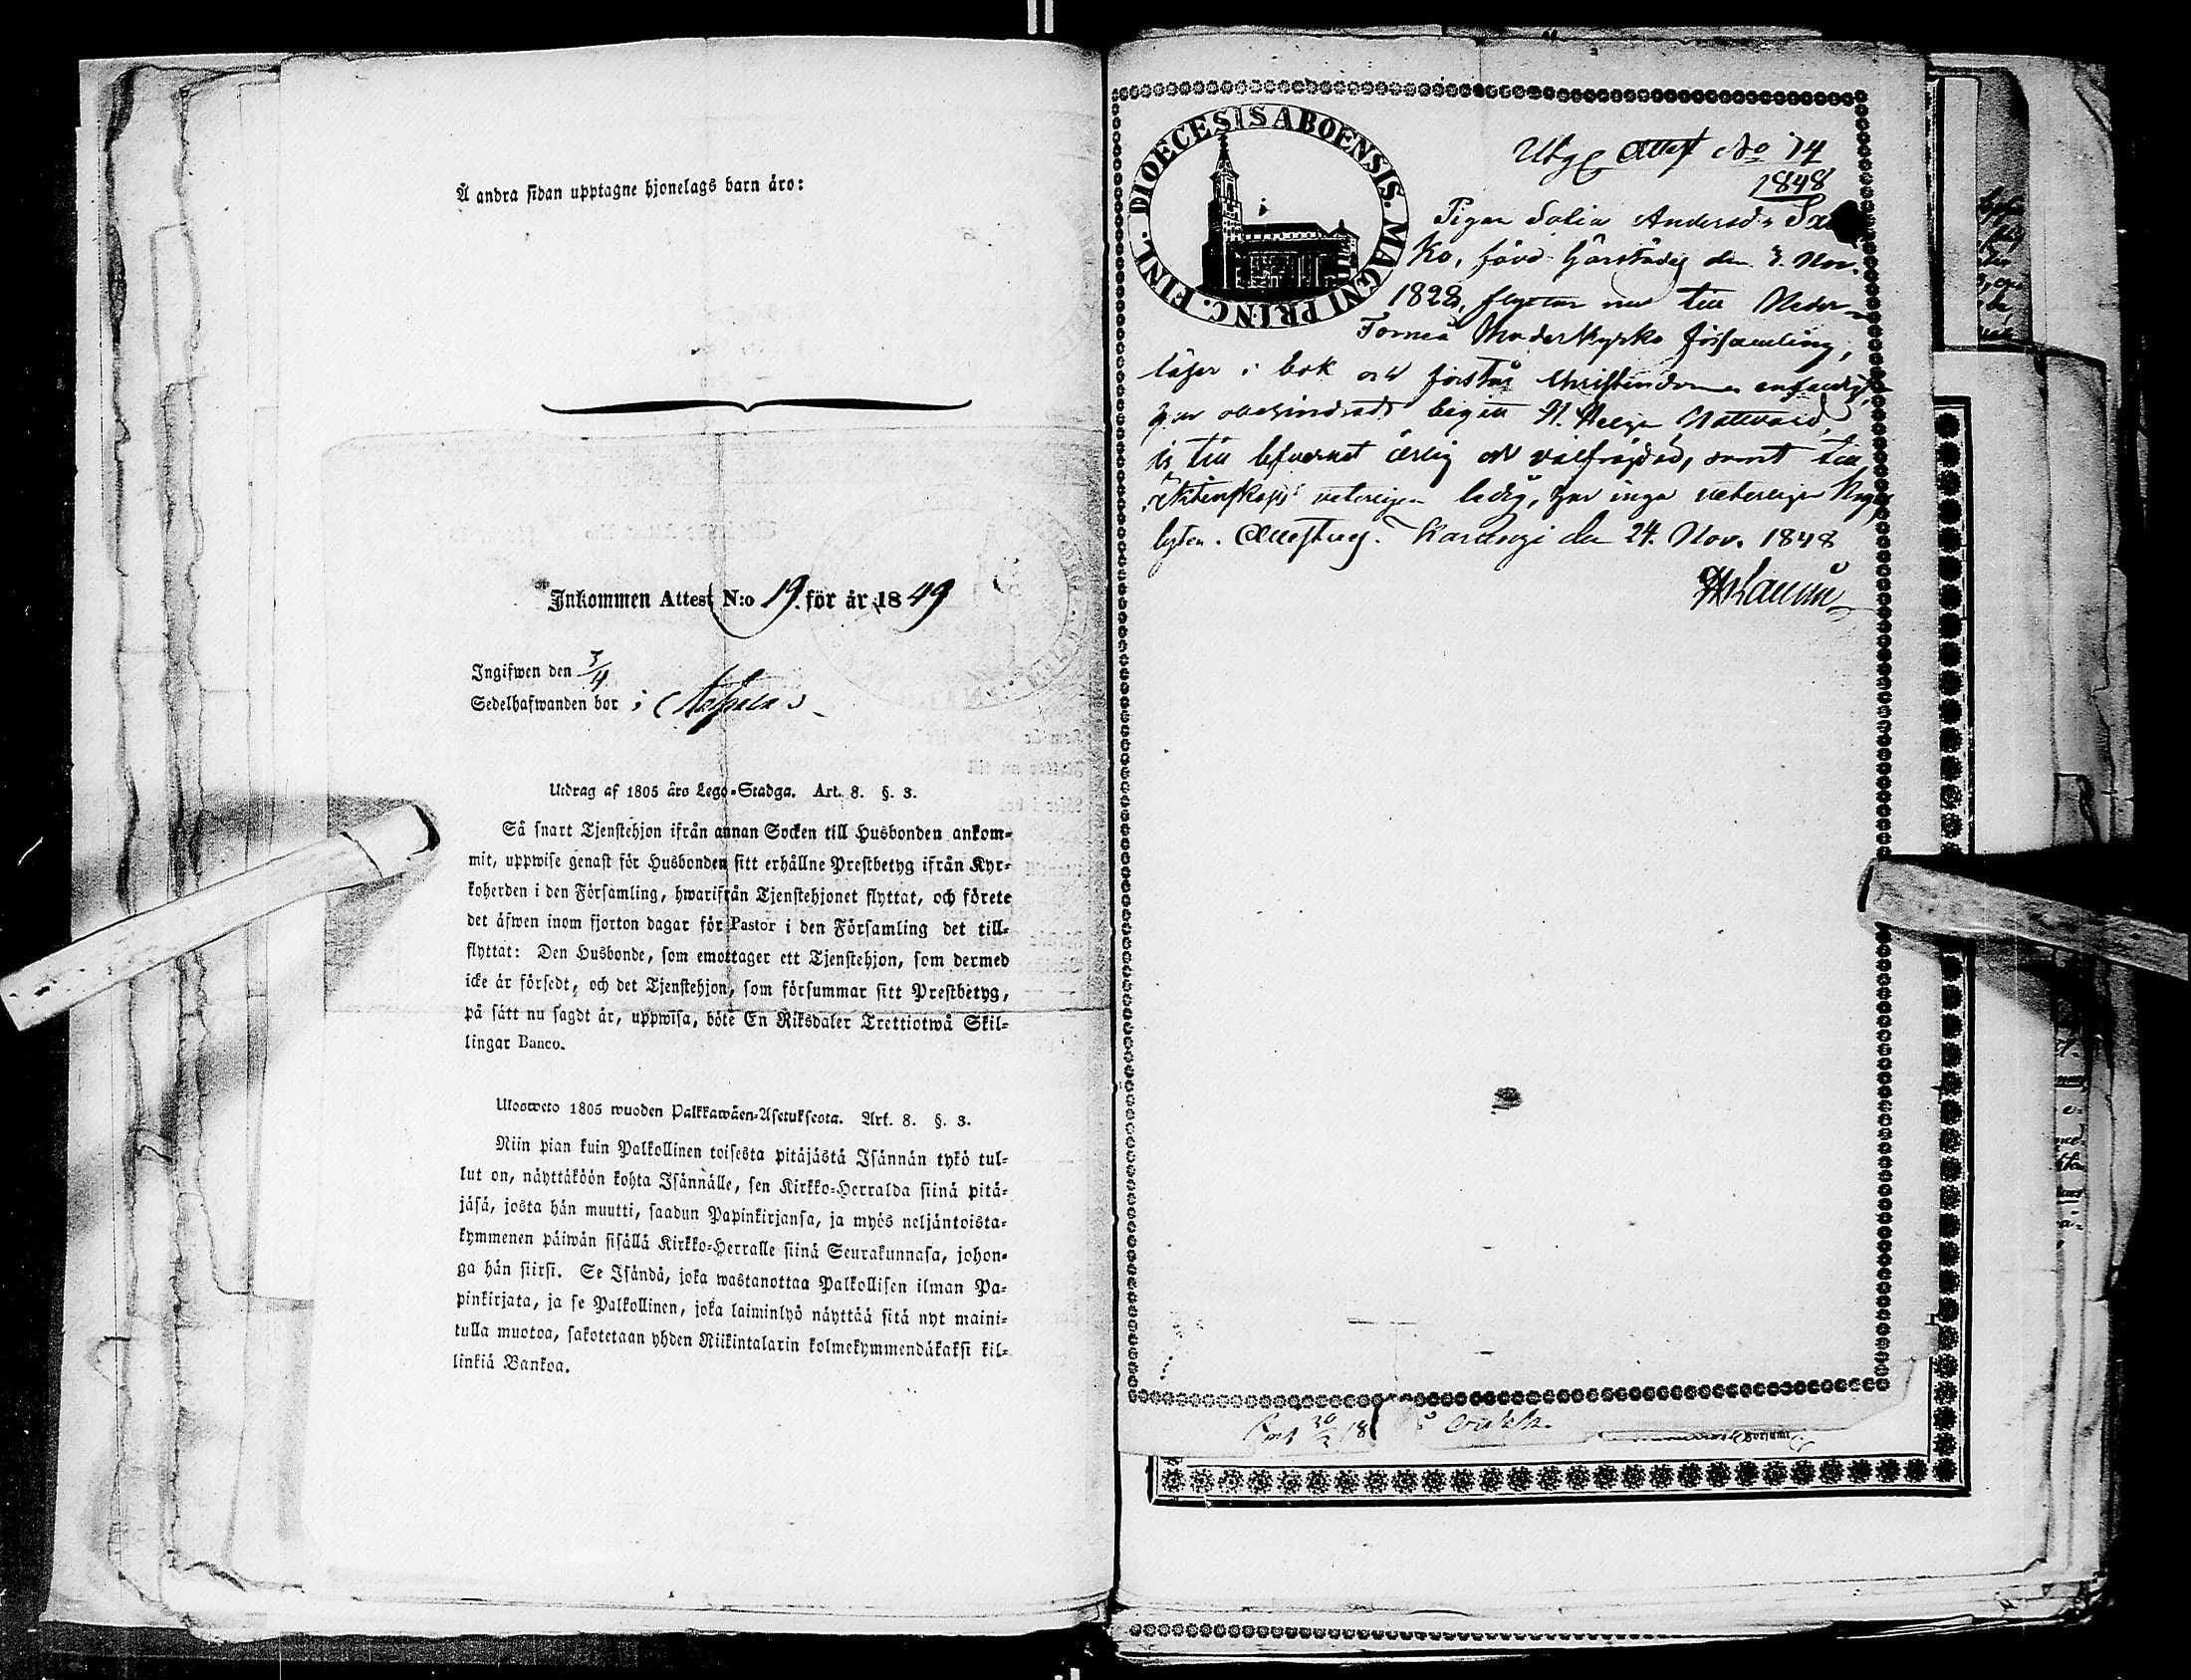 Å andra sidan upptagne hjonelags barn äro:
Inkommen Attest N:o 19. för år 1849
Ingifwen den 3/4
Sedelhafwanden bor i
Utdrag af 1805 års Lego-Stadga. Art. 8. §. 3.
Så snart Tjenstehjon ifrån annan Socken till Husbonden ankom-
mit, uppwise genast för Husbonden sitt erhållne Prestbetyg ifrån Kyr-
koherden i den Församling, hwarifrån Tjenstehjonet flyttat, och förete
det äfwen inom fjorton dagar för Pastor i den Församling det till-
flyttat: Den Husbonde, som emottager ett Tjenstehjon, som dermed
icke är försedt, och det Tjenstehjon, som försummar sitt Prestbetyg,
på sätt nu sagdt är, uppwisa, böte En Riksdaler Trettiotwå Skil-
lingar Banco.
Ulosweto 1805 wuoden Palkkawäen-Asetuksesta. Art. 8. §. 3.
Niin pian kuin Palkollinen toisesta pitäjästä Isännän tykö tul-
lut on, näyttäköön kohta Isännälle, sen Kirkko-Herralda siinä pitä-
jäsä, josta hän muutti, saadun Papinkirjansa, ja myös neljäntoista-
kymmenen päiwän sisällä Kirkko-Herralle siinä Seurakunnasa, johon-
ga hän siirsi. Se Isändä, joka wastanottaa Palkollisen ilman Pa-
pinkirjata, ja se Palkollinen, joka laiminlyö näyttää sitä nyt maini-
tulla muotoa, sakotetaan yhden Riikintalarin kolmekymmendäkaksi kil-
linkiä Bankoa.
DIOECESIS ABOENSIS. MAGNI PRINC. FINL.
Utg. Attest No 74
1848
Pigan Andersd:r
ko, född härstädes den 3. Nov.
1828, flyttar nu till Neder-
Torneå Moderkyrko församling,
läser i bok och förstår Christendomen enfaldigt,
har obehindradt begått H. Helga Nattvard,
är till lefvernet ärlig och välfräjdad, samt till
äktenskaps veterligen ledig, har inga veterligen
lyten. Attesteras. Karungi den 24. Nov. 1848